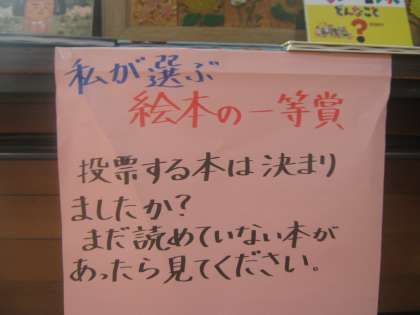 そんなこと
?
私が選ぶ
絵本の一等賞
投票する本は決まり
ましたか？
まだ読めていない本が
あったら見てください。